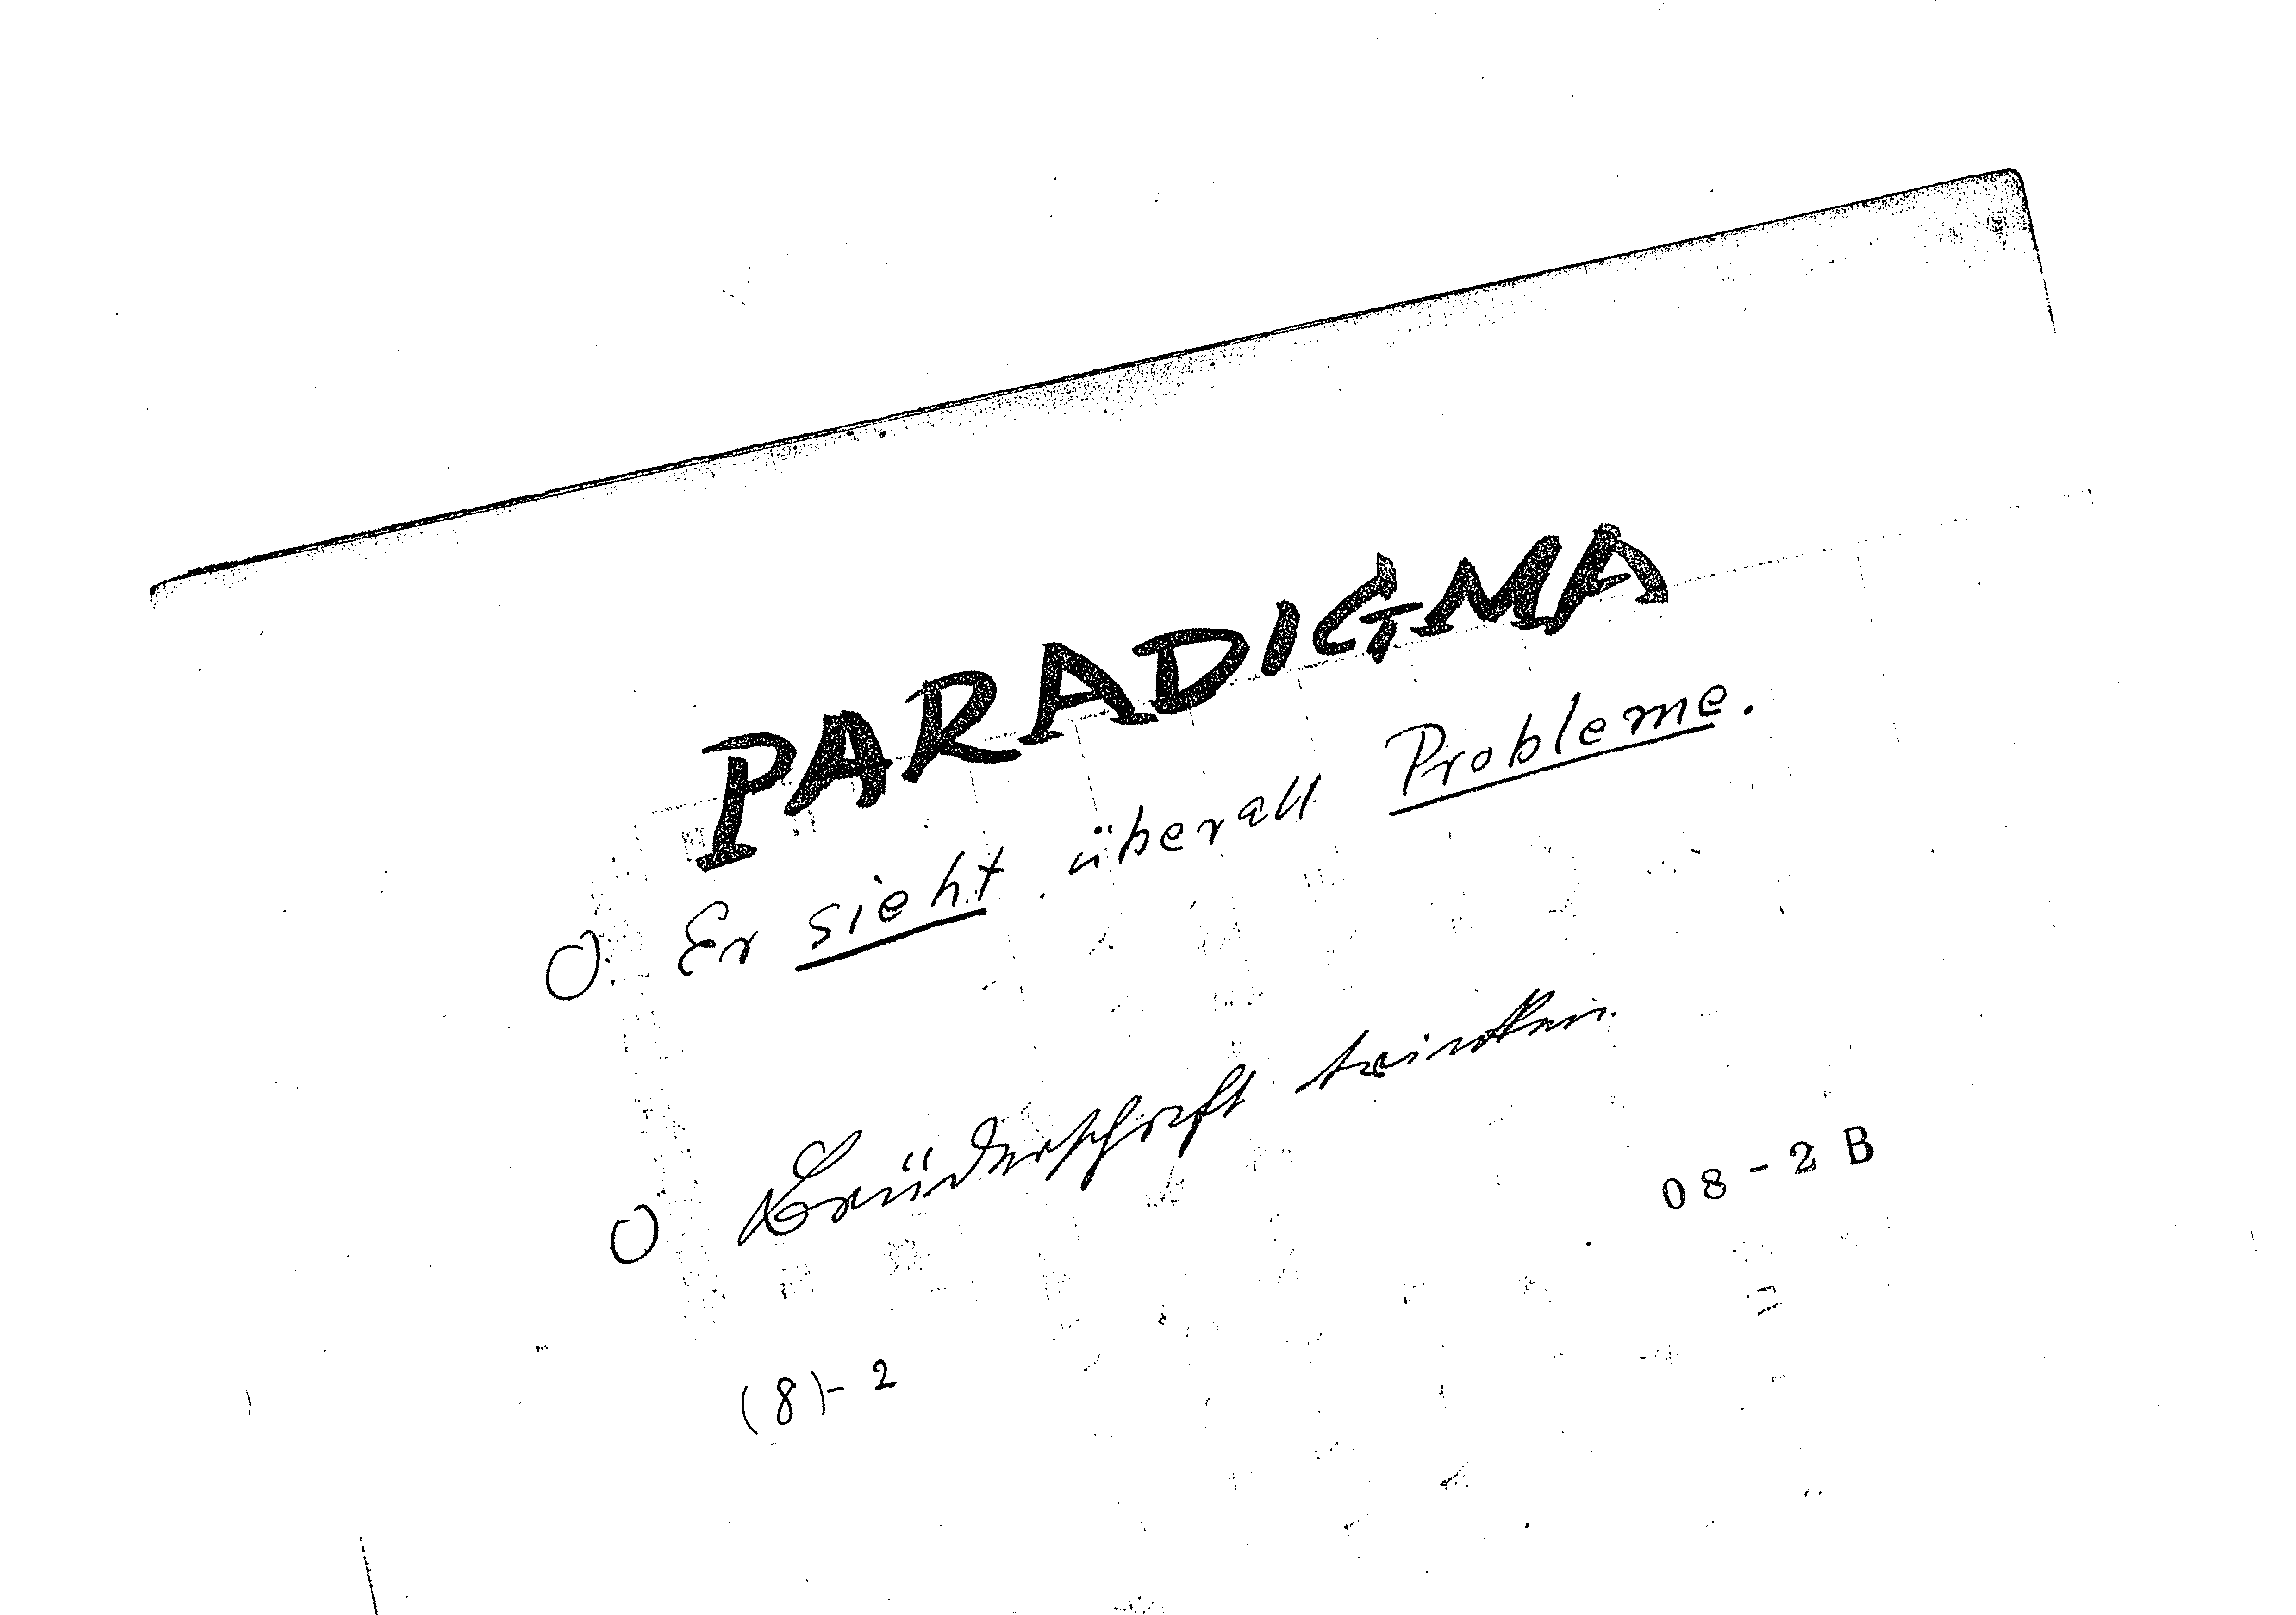 PARADIGMA
O Er sieht überall Probleme.
O Brüderschaft trinken.
08-2B
(8)-2